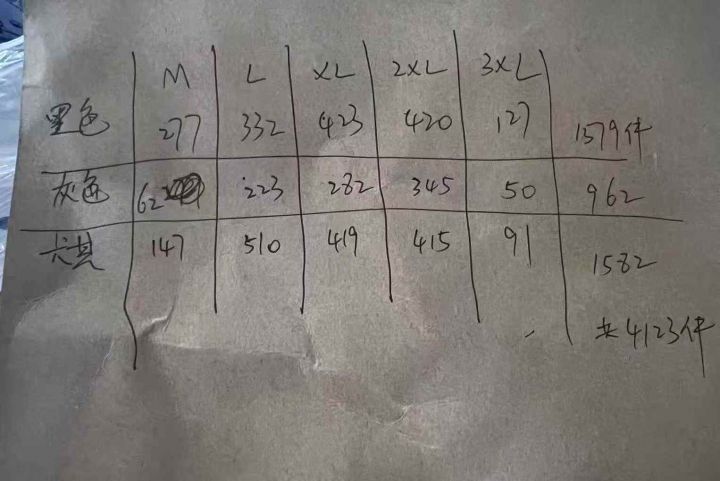 M L XL 2XL 3XL
黑色 277 332 423 420 127 1579件
灰色 62 223 282 345 50 962
卡其 147 510 419 415 91 1582
共4123件